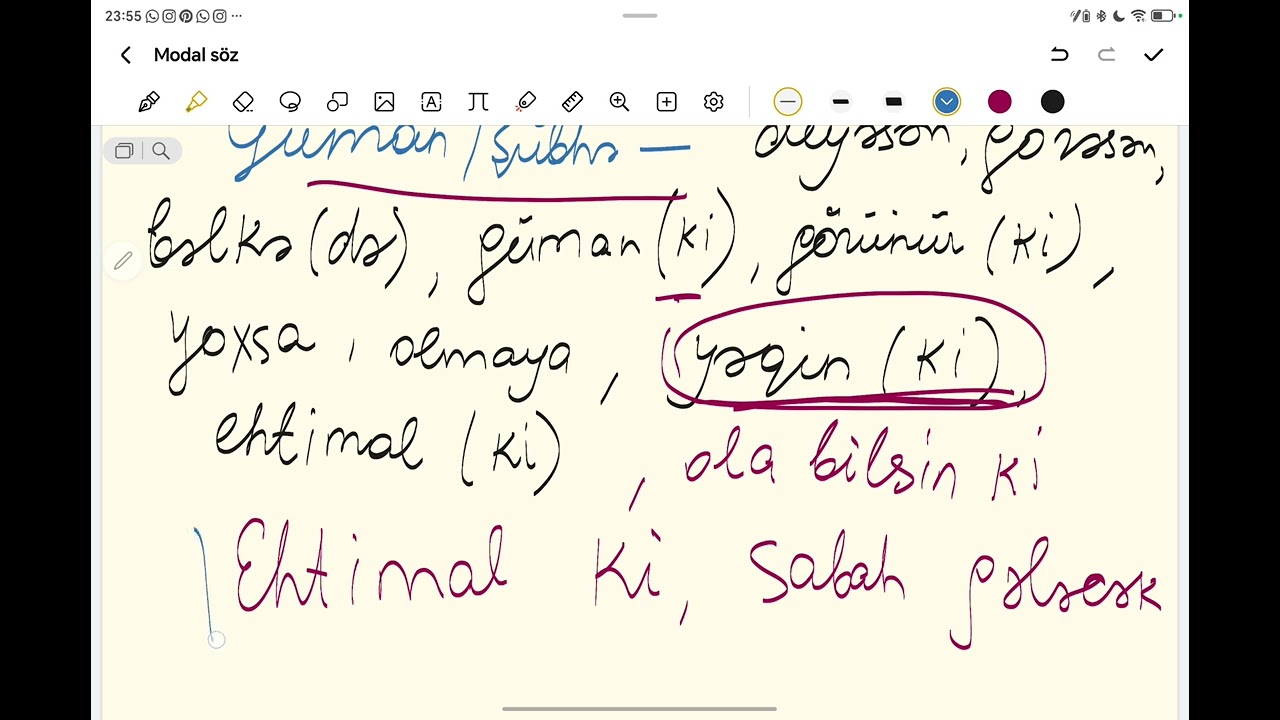 23:55
Modal söz
Güman/Şübhə — deyəsən, görəsən,
bəlkə (də), güman (ki), görünür (ki),
yoxsa, olmaya, yəqin (ki),
ehtimal (ki), ola bilsin ki
Ehtimal ki, sabah gələcək